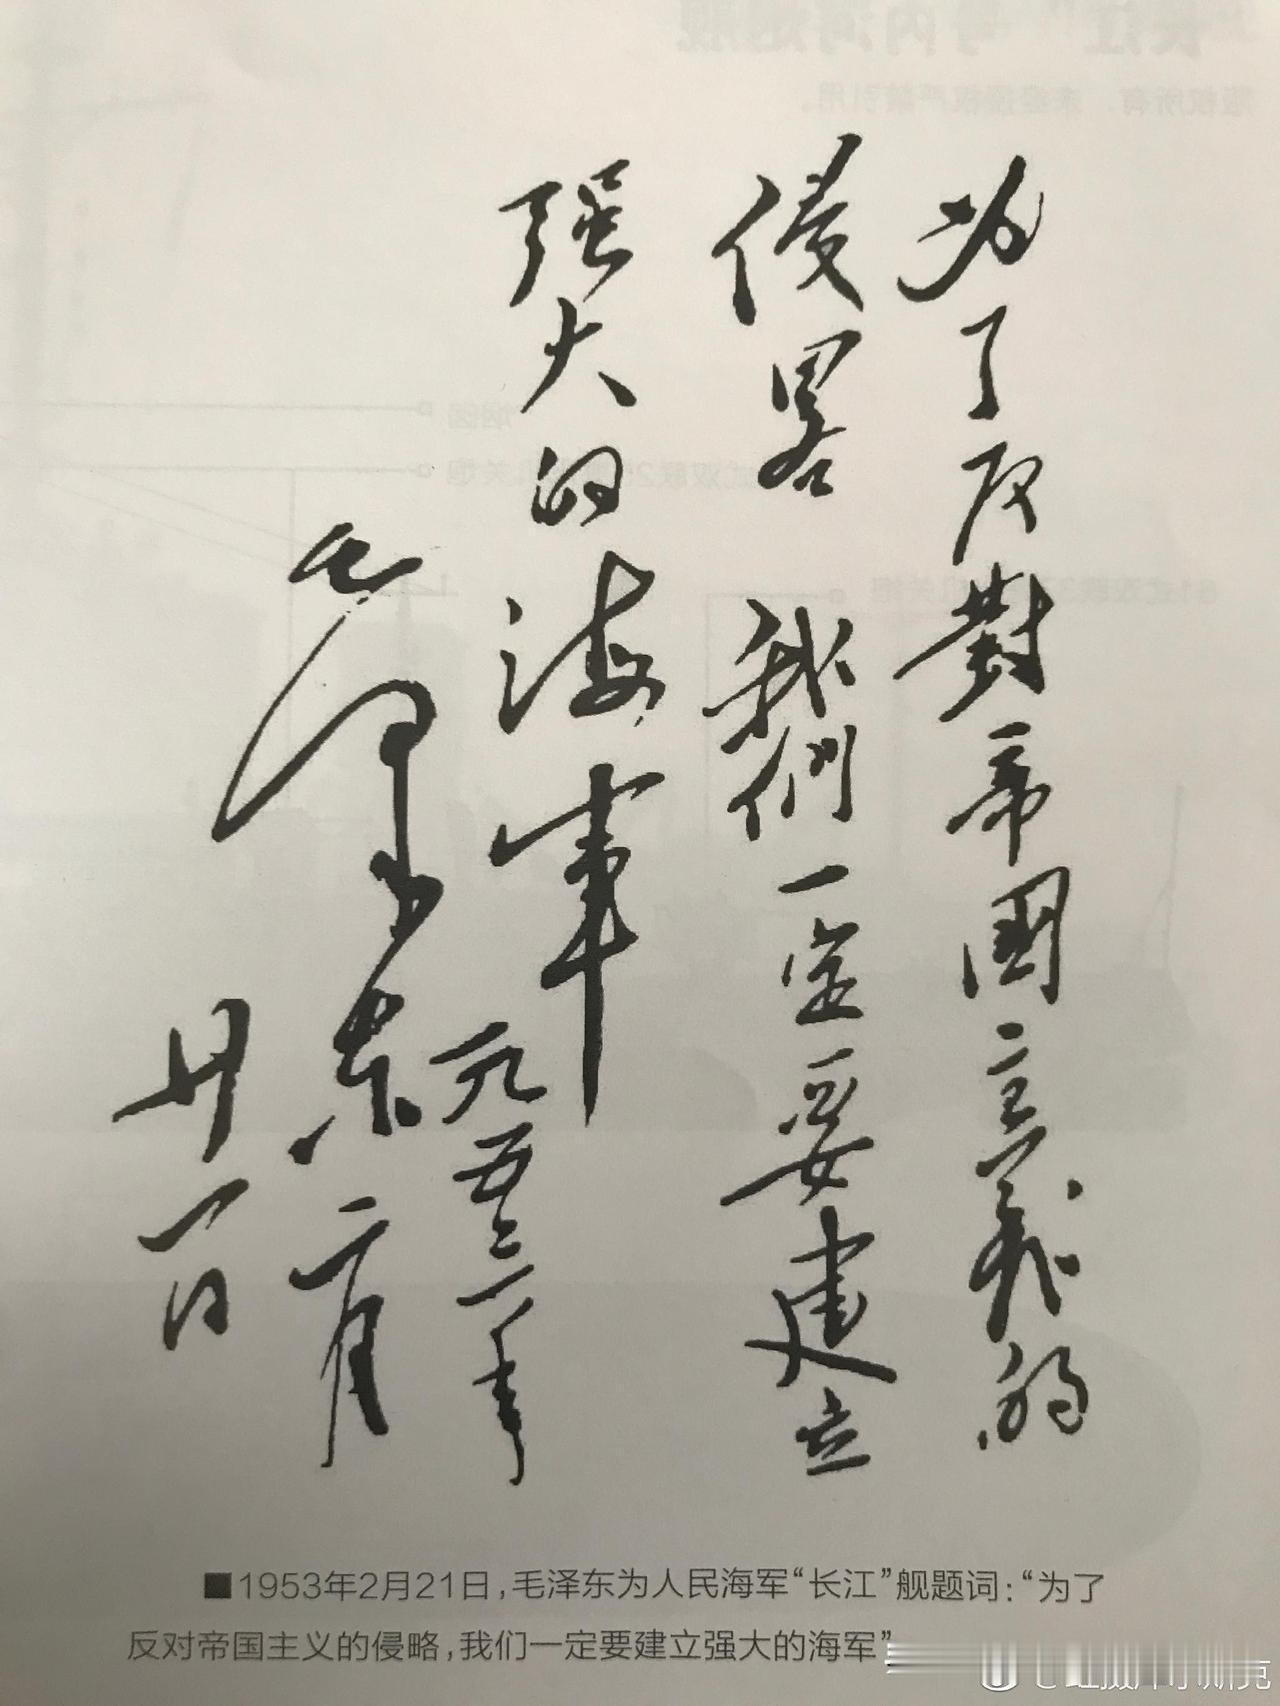 为了反對帝國主義的
侵畧 我們一定要建立
强大的海軍
毛泽东
一九五三年
二月
廿一日
■1953年2月21日，毛泽东为人民海军“长江”舰题词：“为了
反对帝国主义的侵略，我们一定要建立强大的海军”